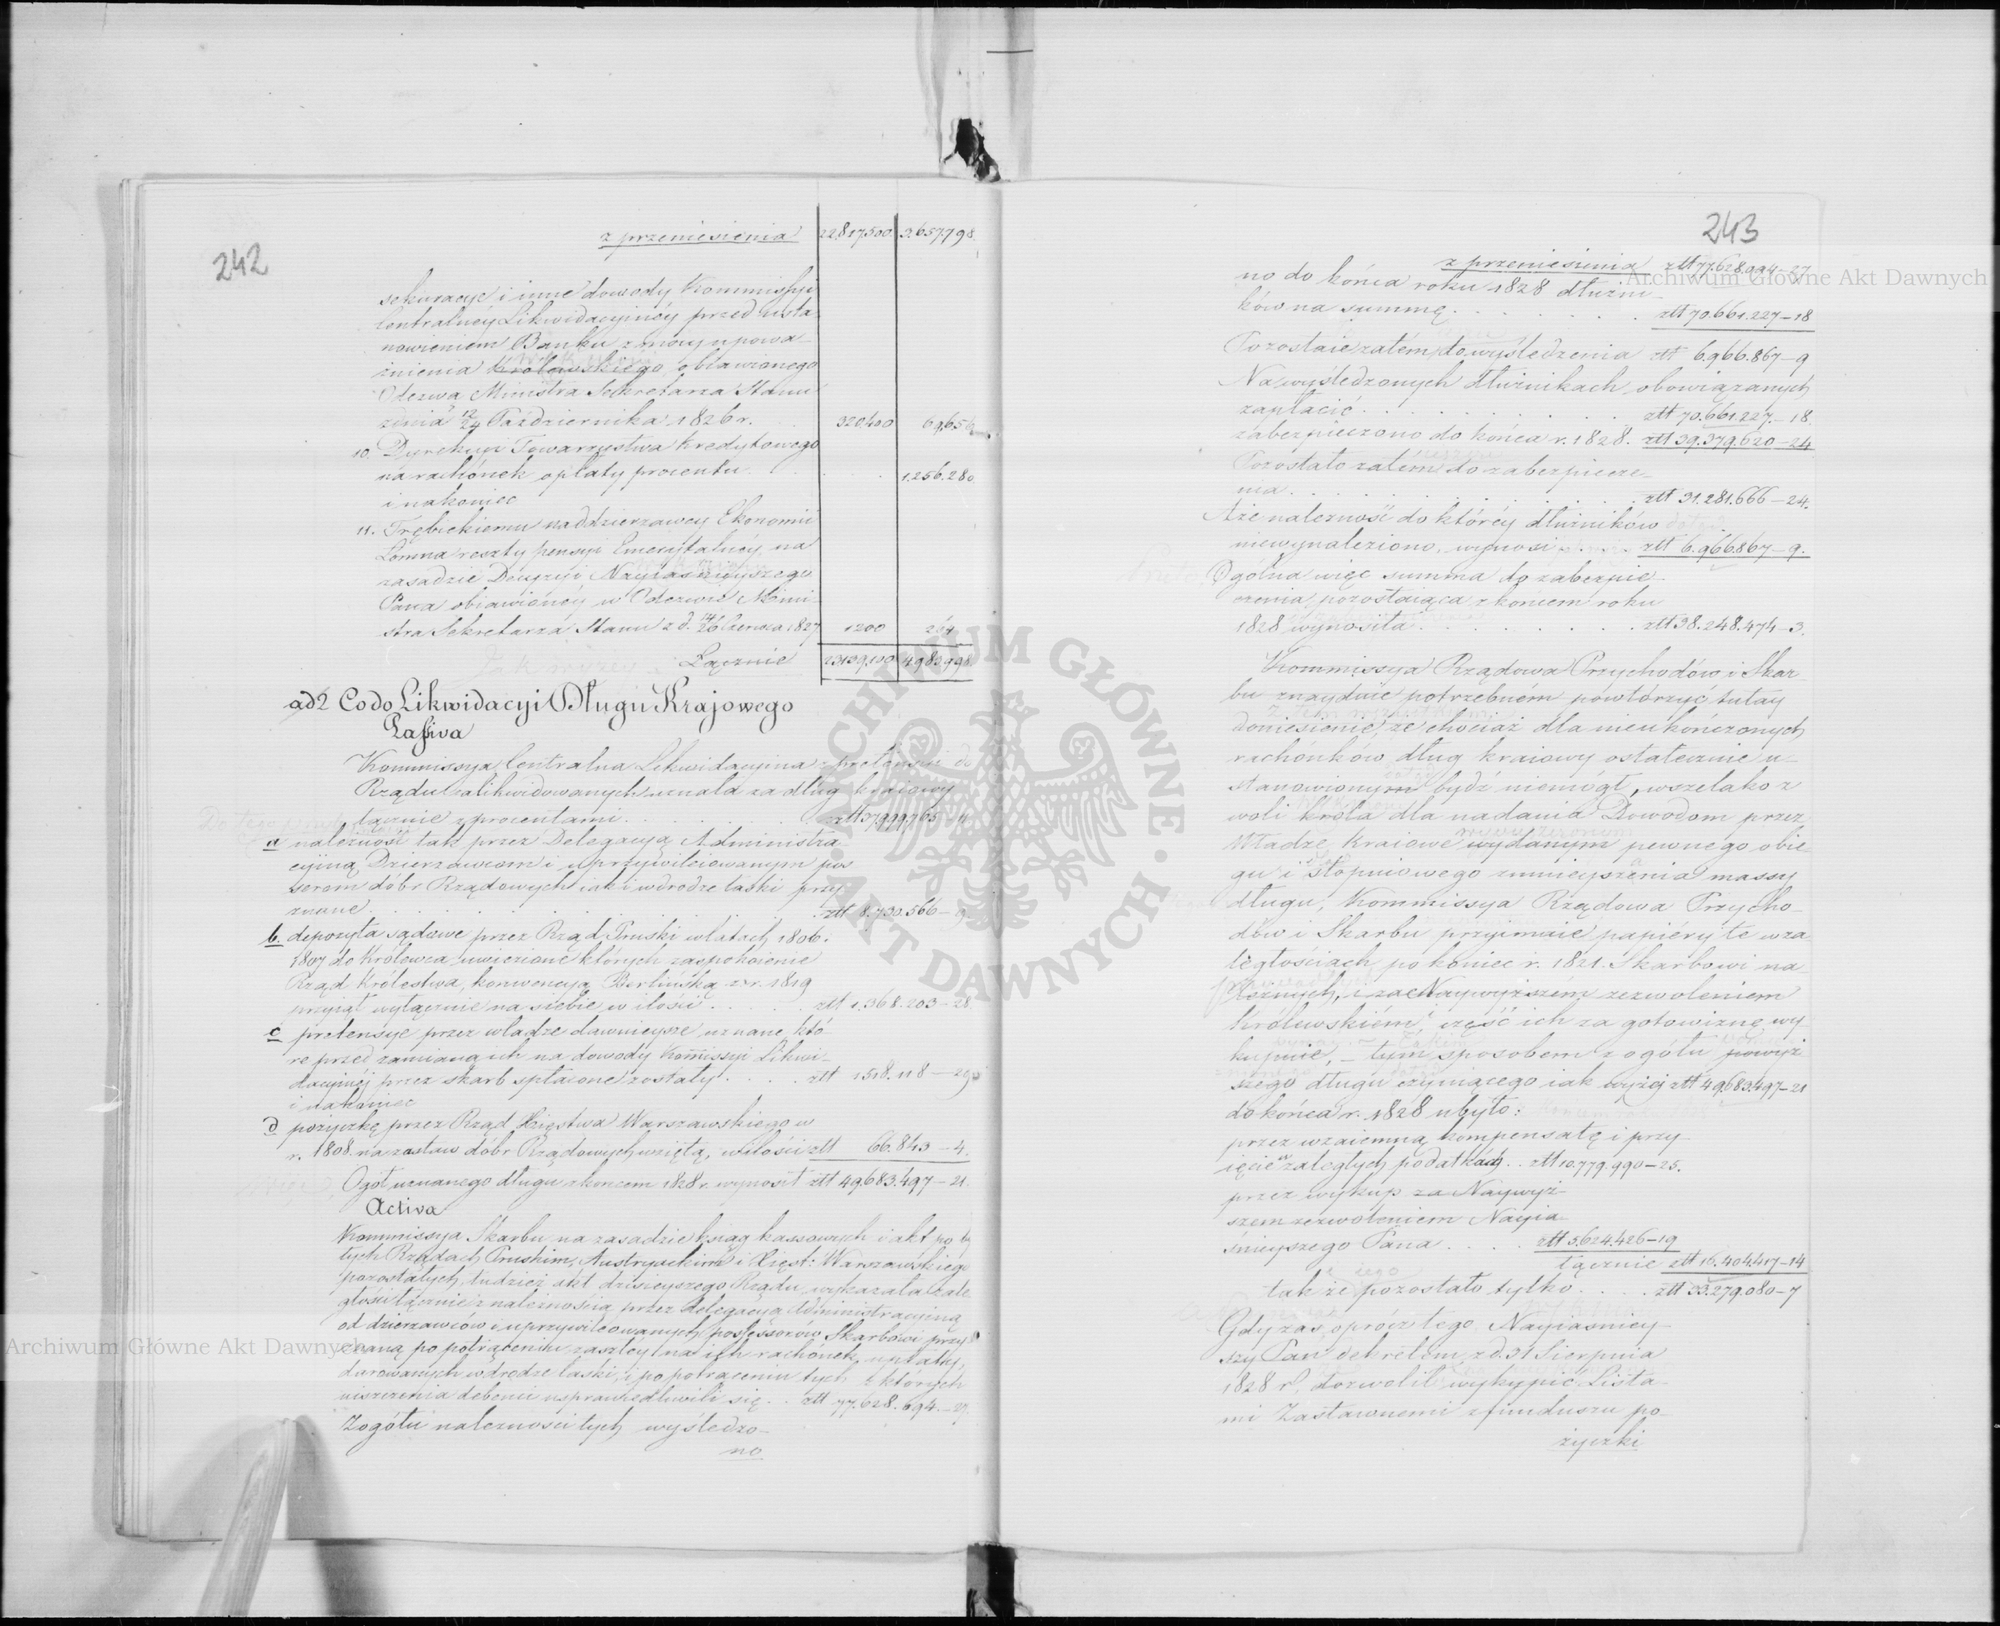 242
z przeniesienia 22817500 3,657,798
sekuracye i inne dowody Kommissyi
Centralney Likwidacyinéy przed usta
nowieniem Banku z mocy upowa-
żnienia Królewskiego obiawionego
Odezwą Ministra Sekretarza Stanu
z dnia 12/24 Października 1826 r. 320,400 69,656
10. Dyrekcyi Towarzystwa Kredytowego
na rachónek opłaty procentu . . 1.256.280
i nakoniec
11. Trębickiemu naddzierzawcy Ekonomii
Łomna reszty pensyi Emerytalnéy na
zasadzie Decyzyi Nayiaśnieyszego
Pana obiawionéy w Odezwie Mini-
stra Sekretarza Stanu z d. 14/26 Czerwca 1827 1200 264
Łącznie 23139,100 4,983,998
ad 2 Co do Likwidacyi Długu Krajowego
Passiva
Kommissya Centralna Likwidacyina z pretensii do
Rządu zalikwidowanych uznała za dług kraiowy
łącznie z procentami . . . złtt 37,999,765 – 11
a należność tak przez Delegacyą Administra
cyjną Dzierżawcom i uprzywileiowanym pos
sorom dóbr Rządowych iak i w drodze łaski przy
znane . . . złtt 8.730.566 – 9
b. depozyta sądowe przez Rząd Pruski w latach 1806.
1807 do Królewca uwiezione których zaspokoienie
Rząd Królestwa, konwencyą Berlińską z r. 1819
przyiął wyłącznie na siebie w ilości . . . złtt 1,368.203 – 28
c pretensye przez władze dawnieysze uznane, któ
re przed zamianą ich na dowody Kommissyi Likwi-
dacyinéj przez skarb spłacone zostały . . . złtt 1518.118 – 29
i nakoniec
d pożyczkę przez Rząd Xięstwa Warszawskiego w
r. 1808. na zastaw dóbr Rządowych wziętą, w ilości złtt 66.843 – 4.
Ogół uznanego długu z końcem 1828 r. wynosił złtt 49,683.497 – 21.
Activa
Kommissya Skarbu na zasadzie ksiąg kassowych i akt po by
łych Rządach Pruskim, Austryackim i Xięst: Warszawskiego
pozostałych, tudzież akt dzisieyszego Rządu, wykazała zale
głości łącznie z należnością przez Delegacyą Administracyjną
od dzierzawców i uprzywileowanych possessorów Skarbowi przy
znaną po potrąceniu zaszłéy na ich rachónek upłatay,
darowanych w drodze łaski, i po potrąceniu tych z których
uiszczenia debenci usprawiedliwili się . . złtt 77,628.094 – 27
Z ogółu należności tych wyśledzo-
no
243
z przeniesienia złtt 77,628,094 – 27
no do końca roku 1828 dłużni-
ków na summę . . . złtt 70.661.227 – 18
Pozostaie zatém do wyśledzenia złtt 6,966.867 – 9
Na wyśledzonych dłużnikach obowiązanych
zapłacić . . . złtt 70,661.227. – 18
zabezpieczono do końca r. 1828. złtt 39,379,620 – 24
Pozostało zatém do zabezpiecze-
nia . . . złtt 31.281.666 – 24.
A że należność do któréy dłużników
niewynaleziono, wynosi . . . złtt 6.966867 – 9.
Ogólna więc summa do zabezpie-
czenia pozostaiąca z końcem roku
1828 wynosiła . . . złtt 38.248.474 – 3.
Kommissya Rządowa Przychodów i Skar-
bu znayduie potrzebném powtórzyć tutay
doniesienie, że chociaż dla nieukończonych
rachónków dług kraiowy ostatecznie u-
stanowionym bydź niemógł, wszelako z
woli Króla dla nadania Dowodom przez
Władze Kraiowe wydanym pewnego obie-
gu i stopniowego zmnieyszenia massy
długu, Kommissya Rządowa Przycho-
dów i Skarbu przyimuie papiery te w za
ległościach po koniec r. 1821. Skarbowi na-
leżnych, i za Naywyższem zezwoleniem
Królewskiém, część ich za gotowiznę wy
kupuie, – tym sposobem z ogółu powyż
szego długu czyniącego iak wyżej złtt 49,683.497 – 21
do końca r. 1828 ubyło:
przez wzaiemną kompensatę i przy-
ięcie w zaległych podatkach . . złtt 10.779.990 – 25.
przez wykup za Naywyż-
szem zezwoleniem Nayia-
śnieyszego Pana . . . złtt 5.624.426 – 19
łącznie złtt 16.404.417 – 14
tak że pozostało tylko . . . złtt 33.279.080 – 7
Gdy zaś oprócz tego Nayiaśniey-
szy Pan dekretem z d. 31 Sierpnia
1828 r. dozwolił wykupić Lista-
mi Zastawnemi z funduszu po-
życzki
Archiwum Główne Akt Dawnych
Archiwum Główne Akt Dawnych
ARCHIWUM GŁÓWNE AKT DAWNYCH